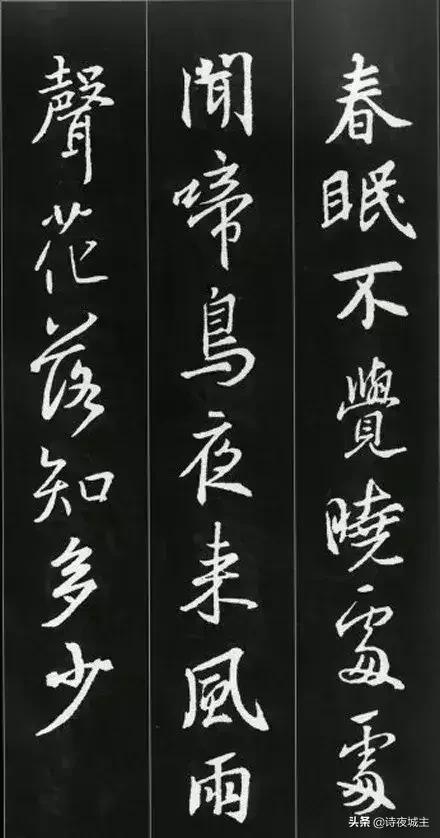 春眠不覺曉處處
聞啼鳥夜来風雨
聲花落知多少
头条 @诗夜城主